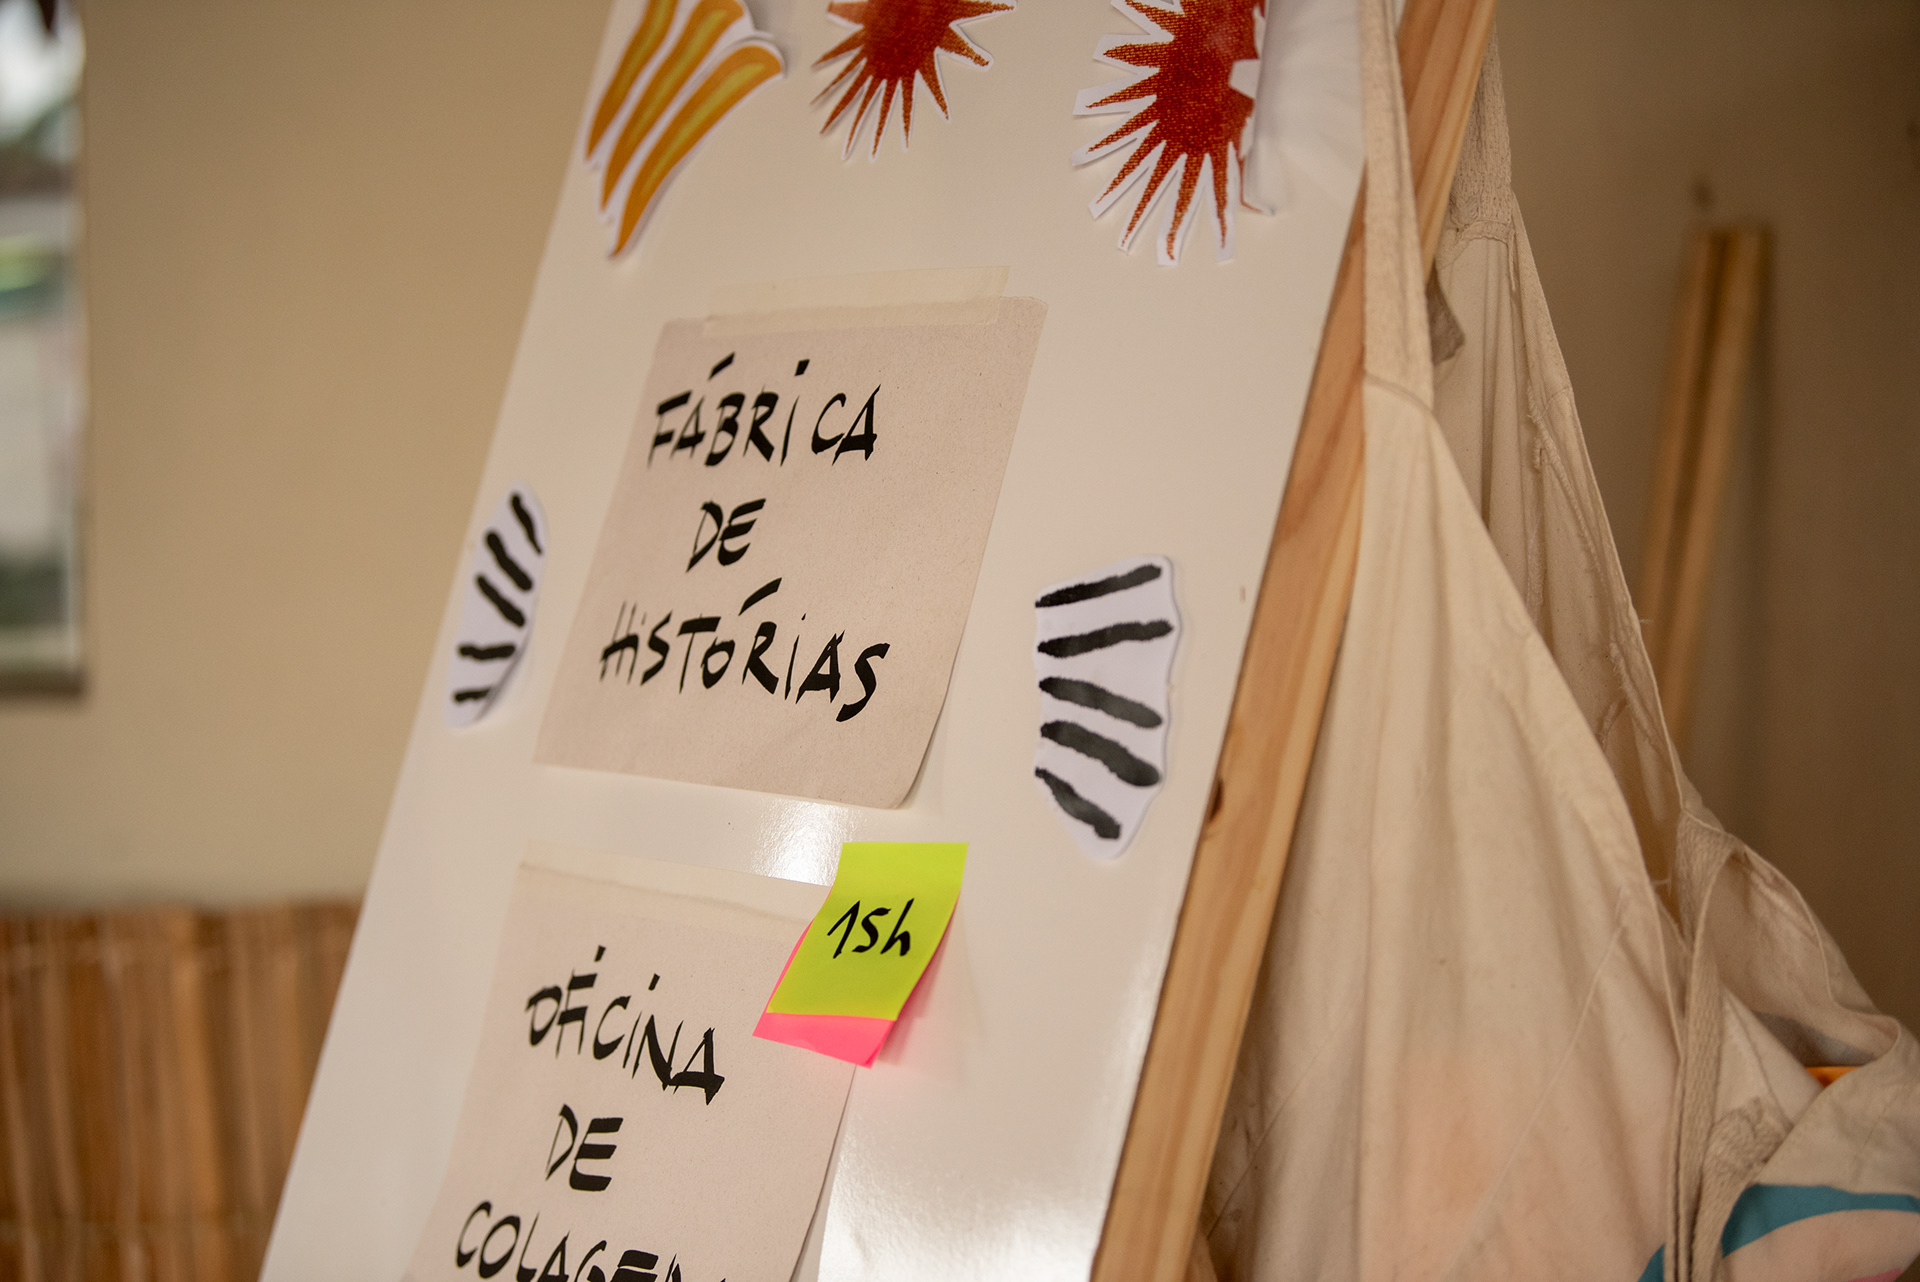 FÁBRICA
DE
HISTÓRIAS
15h
OFICINA
DE
COLAGEM